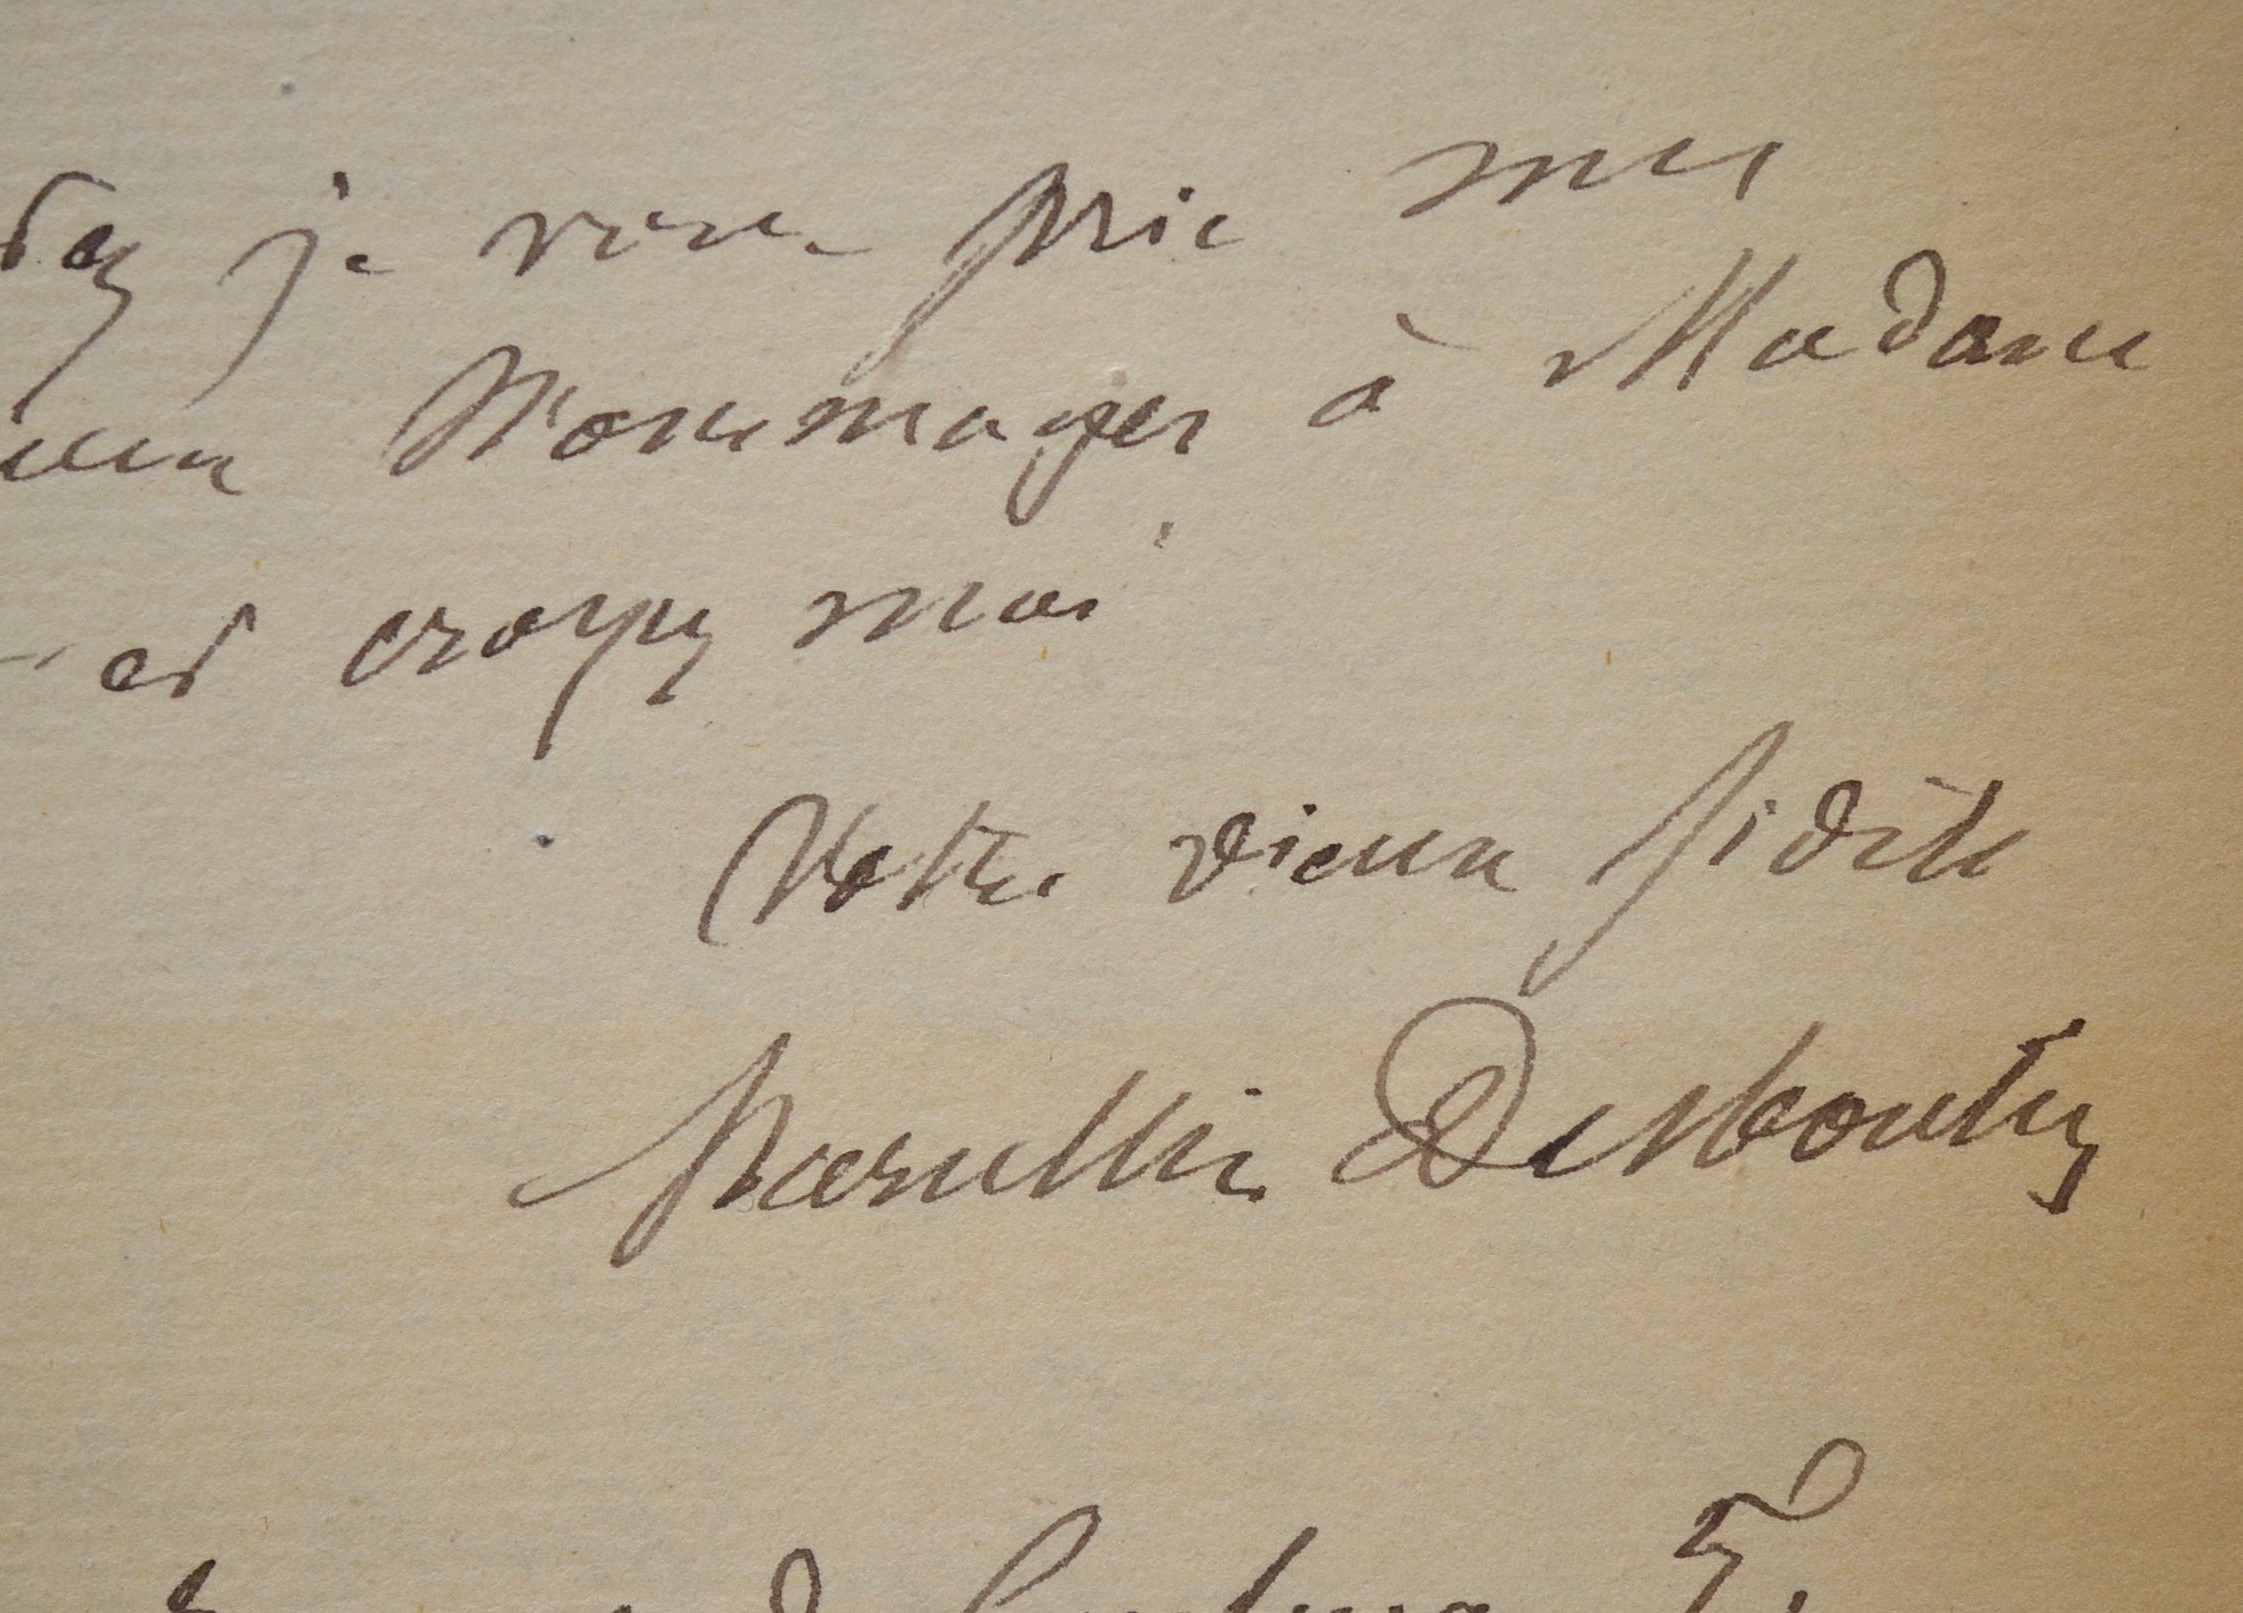 je vous prie mes
hommages à Madame
et croyez moi
Votre vieux fidèle
Marcellin Desboutin